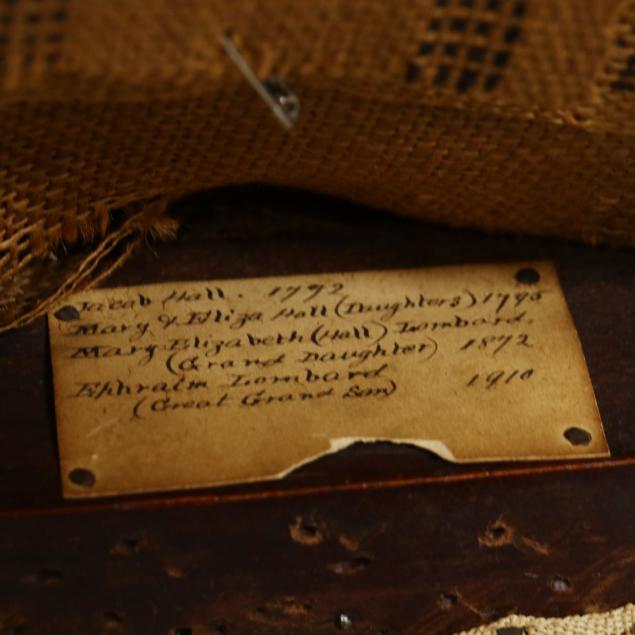 Jacob Hall. 1792
Mary & Eliza Hall (Daughters) 1795
Mary Elizabeth (Hall) Lombard.
(Grand Daughter) 1872
Ephraim Lombard 1910
(Great Grand Son)